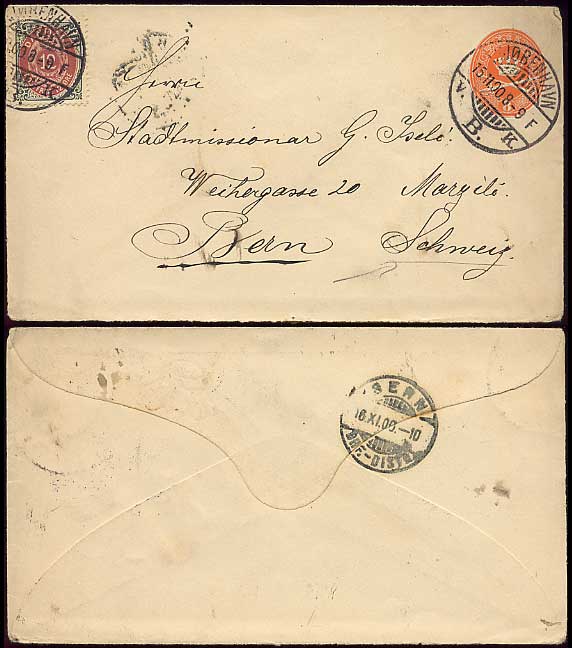 KJØBENHAVN
10
KJØBENHAVN
15.11.00.8-9 F
V. B. K
Herrn
Stadtmissionar G. Iseli.
Weihergasse 20 Marzili.
Bern Schweiz.
BERN
16.XI.00.-10
BRF.-DISTR.